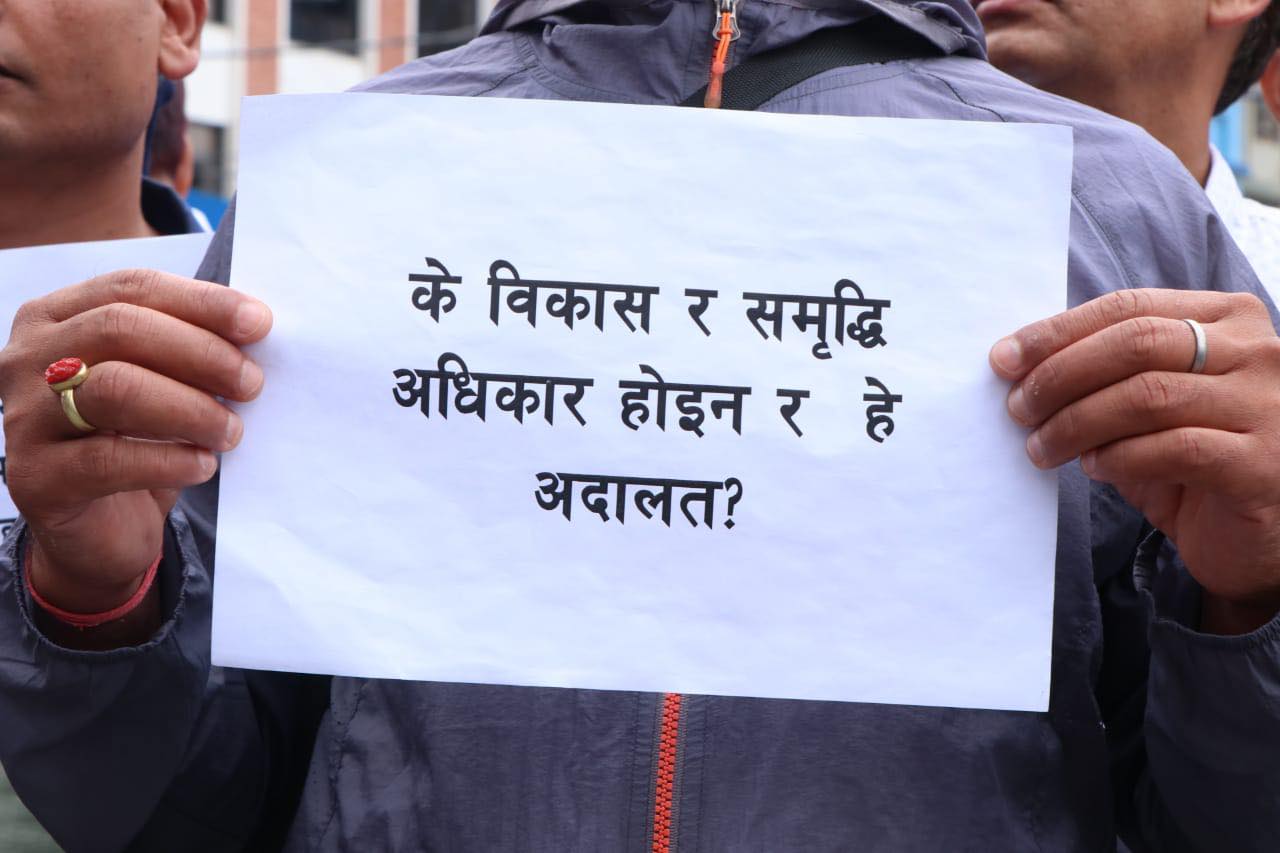 के विकास र समृद्धि
अधिकार होइन र हे
अदालत?